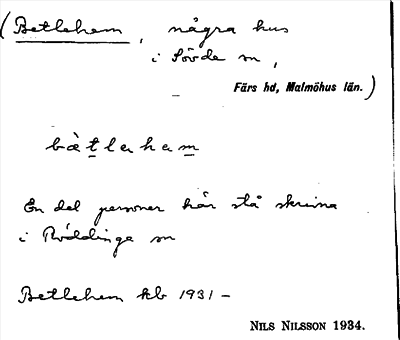 (Betlehem, några hus
i Sövde sn,
Färs hd, Malmöhus län.)
bètlehem
En del personer här stå skrivna
i Röddinge sn
Betlehem kb 1931 –
NILS NILSSON 1934.